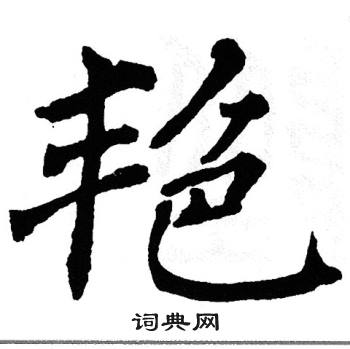 艳
词典网